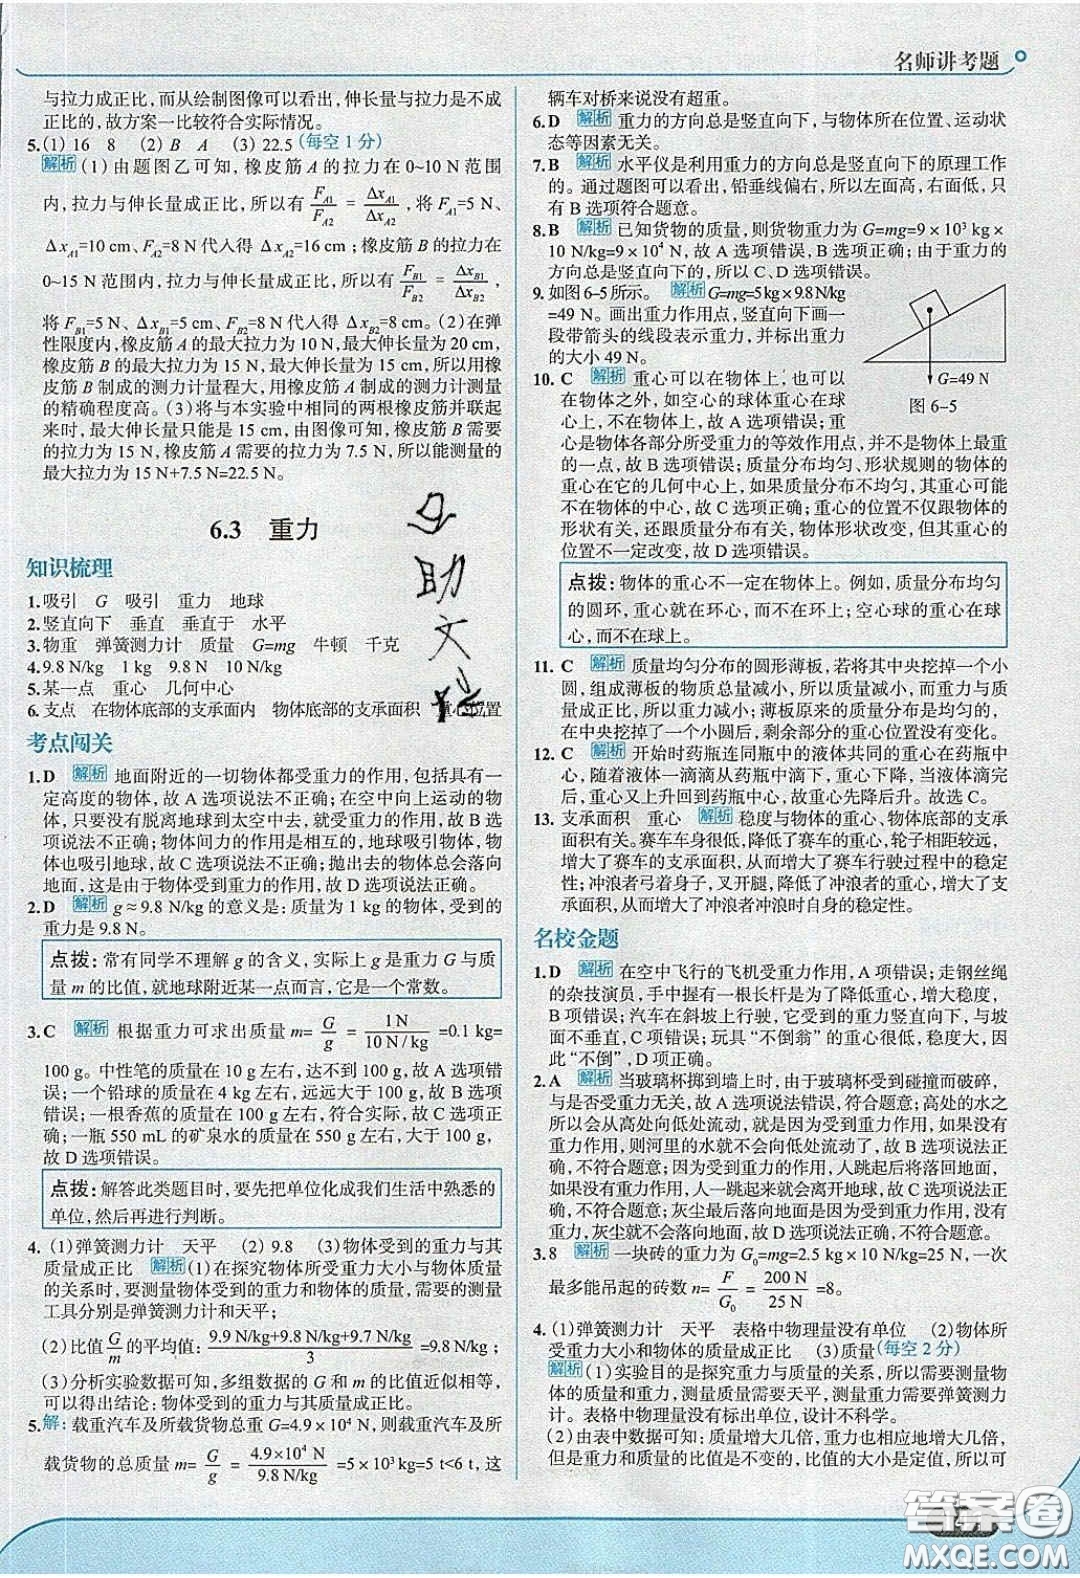 名师讲考题
与拉力成正比,而从绘制图像可以看出,伸长量与拉力是不成
正比的,故方案一比较符合实际情况。
5.(1) 16 8 (2) B A (3) 22.5 (每空1分)
解析 (1)由题图乙可知,橡皮筋A的拉力在0~10 N范围
内,拉力与伸长量成正比,所以有 F_A1/F_A2 = Δx_A1/Δx_A2 ,将F_A1=5 N、
Δx_A1=10 cm、F_A2=8 N代人得Δx_A2=16 cm;橡皮筋B的拉力在
0~15 N范围内,拉力与伸长量成正比,所以有 F_B1/F_B2 = Δx_B1/Δx_B2 ,
将F_B1=5 N、Δx_B1=5 cm、F_B2=8 N代人得Δx_B2=8 cm。(2)在弹
性限度内,橡皮筋A的最大拉力为10 N,最大伸长量为20 cm,
橡皮筋B的最大拉力为15 N,最大伸长量为15 cm,所以用橡
皮筋B制成的测力计量程大,用橡皮筋A制成的测力计测量
的精确程度高。(3)将与本实验中相同的两根橡皮筋并联起
来时,最大伸长量只能是15 cm,由图像可知,橡皮筋B需要
的拉力为15 N,橡皮筋A需要的拉力为7.5 N,所以能测量的
最大拉力为15 N+7.5 N=22.5 N。
6.3 重力
知识梳理
1.吸引 G 吸引 重力 地球
2.竖直向下 垂直 垂直于 水平
3.物重 弹簧测力计 质量 G=mg 牛顿 千克
4.9.8 N/kg 1 kg 9.8 N 10 N/kg
5.某一点 重心 几何中心
6.支点 在物体底部的支承面内 物体底部的支承面积 重心位置
考点闯关
1.D 解析 地面附近的一切物体都受重力的作用,包括具有一
定高度的物体,故A选项说法不正确;在空中向上运动的物
体,只要没有脱离地球到太空中去,都受重力的作用,故B选
项说法不正确;物体间力的作用是相互的,地球吸引物体,物
体也吸引地球,故C选项说法不正确;抛出去的物体总会落向
地面,这是由于物体受到重力的作用,故D选项说法正确。
2.D 解析 g≈9.8 N/kg的意义是:质量为1 kg的物体,受到的
重力是9.8 N。
点拨:常有同学不理解g的含义,实际上g是重力G与质
量m的比值,就地球附近某一点而言,它是一个常数。
3.C 解析 根据重力可求出质量m= G/g = 1 N/(10 N/kg) =0.1 kg=
100 g。中性笔的质量在10 g左右,达不到100 g,故A选项错
误;一个铅球的质量在4 kg左右,远远大于100 g,故B选项
错误;一根香蕉的质量在100 g左右,符合实际,故C选项正
确;一瓶550 mL的矿泉水的质量在550 g左右,大于100 g,
故D选项错误。
点拨:解答此类题目时,要先把单位化成我们生活中熟悉的
单位,然后再进行判断。
4.(1)弹簧测力计 天平 (2) 9.8 (3)物体受到的重力与其
质量成正比 解析 (1)在探究物体所受重力大小与物体质量
的关系时,要测量物体受到的重力和物体的质量,需要的测量
工具分别是弹簧测力计和天平;
(2)比值 G/m 的平均值: (9.9 N/kg+9.8 N/kg+9.7 N/kg)/3 =9.8 N/kg;
(3)分析实验数据可知,多组数据的G和m的比值近似相等,可
以得出结论:物体受到的重力与其质量成正比。
5.解:载重汽车及所载货物总重G=4.9×10⁴ N,则载重汽车及所
载货物的总质量m= G/g = 4.9×10⁴ N/(9.8 N/kg) =5×10³kg=5 t<6 t,这
辆车对桥来说没有超重。
6.D 解析 重力的方向总是竖直向下,与物体所在位置、运动状
态等因素无关。
7.B 解析 水平仪是利用重力的方向总是竖直向下的原理工作
的。通过题图可以看出,铅垂线偏右,所以左面高,右面低,只
有B选项符合题意。
8.B 解析 已知货物的质量,则货物重力为G=mg=9×10³ kg×
10 N/kg=9×10⁴ N,故A选项错误,B选项正确;由于重力的
方向总是竖直向下的,所以C、D选项错误。
9.如图6-5所示。 解析 G=mg=5 kg×9.8 N/kg
=49 N。画出重力作用点,竖直向下画一
段带箭头的线段表示重力,并标出重力
的大小49 N。
G=49 N
图6-5
10.C 解析 重心可以在物体上,也可以
在物体之外,如空心的球体重心在球
心上,不在物体上,故A选项错误;重
心是物体各部分所受重力的等效作用点,并不是物体上最重
的一点,故B选项错误;质量分布均匀、形状规则的物体的
重心在它的几何中心上,如质量分布不均匀,其重心可能不
在物体的中心上,故C选项正确;重心的位置不仅跟物体的
形状有关,还跟质量分布有关,物体形状改变,但其重心的
位置不一定改变,故D选项错误。
点拨:物体的重心不一定在物体上。例如,质量分布均匀
的圆环,重心就在环心,而不在环上;空心球的重心在球
心,而不在球上。
11.C 解析 质量均匀分布的圆形薄板,若将其中央挖掉一个小
圆,组成薄板的物质总量减小,所以质量减小,而重力与质
量成正比,所以重力也减小;薄板原来的重心在圆心处,现
在中央挖掉了一个小圆后,剩余部分的重心位置没有变化。
12.C 解析 开始时药瓶连同瓶中的液体共同的重心在药瓶中
心,随着液体一滴滴从药瓶中滴下,重心下降,当液体滴完
后,重心又上升到药瓶中心,故重心先降后升。故选C。
13.支承面积 重心 解析 稳度与物体的重心、物体底部的支承
面积有关。赛车车身很低,降低了赛车的重心,轮子相距较远,
增大了赛车的支承面积,从而增大了赛车行驶过程中的稳定
性;冲浪者弓着身子,叉开腿,降低了冲浪者的重心,增大了支
承面积,从而增大了冲浪者冲浪时自身的稳定性。
名校金题
1.D 解析 在空中飞行的飞机受重力作用,A项错误;走钢丝绳
的杂技演员,手中握有一根长杆是为了降低重心,增大稳度,
B项错误;汽车在斜坡上行驶,它受重力竖直向下,与坡
面不垂直,C项错误;玩具“不倒翁”的重心很低,稳度大,
因此“不倒”,D项正确。
2.A 解析 当玻璃杯掷到墙上时,由于玻璃杯受到碰撞而破碎,
与是否受重力无关,故A选项说法错误,符合题意;高处的水之
所以会从高处向低处流动,是因为受到了重力的作用,如果没
有重力的作用,则河里的水就不会向低处流动了,故B选项说法
正确,不符合题意;因为受到重力的作用,人跳起后将落回地面,
如果没有受到重力,人一跳起来就会离开地球,故C选项说法正
确,不符合题意;灰尘最后落向地面是因为受到重力的作用,没
有重力,灰尘就不会落向地面,故D选项说法正确,不符合题意。
3.8 解析 一块砖的重力为G₀=mg=2.5 kg×10 N/kg=25 N,一次
最多能吊起的砖数n= F/G₀ = 200 N/25 N =8。
4.(1)弹簧测力计 天平 表格中物理量没有单位 (2)物体所
受重力大小和物体的质量成正比 (3)质量(每空2分)
解析 (1)实验目的是探究重力与质量的关系,所以需要测量物
体的质量和重力,测量质量需要天平,测量重力需要弹簧测力
计。表格中物理量没有标出单位,设计不科学。
(2)由表中数据可知:质量增大几倍,重力也相应地增大几倍,
但是重力和质量的比值是不变的,比值的大小是定值,所以可
答案卷
MXQE.COM